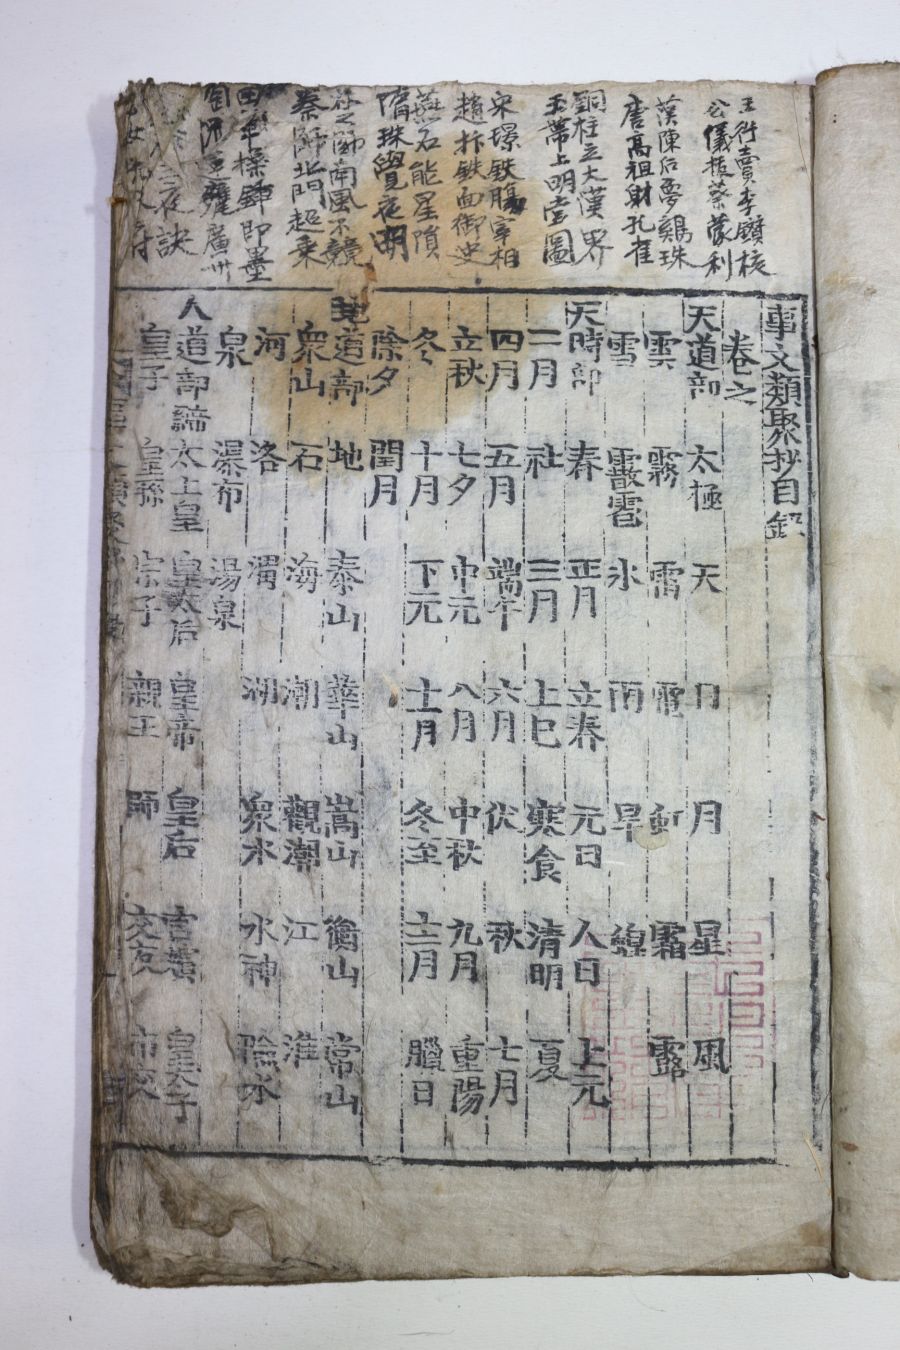 王衍賣李鑽核
公儀拔葵蒙利
漢陳后夢鷄珠
唐高祖射孔雀
銅柱立大漢界
玉帶上明堂圖
宋璟鉄膓宰相
趙抃鉄面御史
燕石能星隕
隋珠覺夜明
之師南風不競
秦師北門超乘
鋒即墨
夜訣
事文類聚抄目錄
卷之
天道部 太極 天 日 月 星 風
雲 霧 雷 電 虹 霜 露
雪 霰雹 氷 雨 旱
天時部 春 正月 立春 元日 人日 上元
二月 社 三月 上巳 寒食 清明 夏
四月 五月 端午 六月 伏 秋 七月
立秋 七夕 中元 八月 中秋 九月 重陽
冬 十月 下元 十一月 冬至 十二月 臘日
除夕 閏月
地道部 地 泰山 華山 嵩山 衡山 常山
衆山 石 海 潮 觀潮 江 淮
河 洛 濁 湖 衆水 水神 險水
泉 瀑布 湯泉
人道部 太上皇 皇太后 皇帝 皇后 皇太子
皇子 皇孫 宗子 親王 師 交友